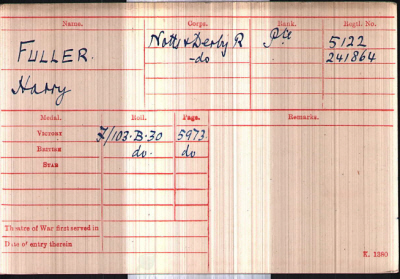 Name. Corps. Rank. Regtl. No.
FULLER. Notts & Derby R Pte 5122
Harry -do 241864
Medal. Roll. Page. Remarks.
Victory F/103.B.30 5973
British do. do
Star
Theatre of War first served in
Date of entry therein
K. 1380